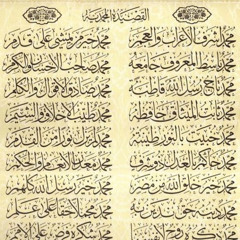 القصيدة المحمدية
محمد أشرف الأعراب والعجم محمد خير من يمشي على قدم
محمد باسط المعروف جامعه محمد صاحب الإحسان والكرم
محمد تاج رسل الله قاطبة محمد صادق الأقوال والكلم
محمد ثابت الميثاق حافظه محمد طيب الأخلاق والشيم
محمد خبيت بالنور طينته محمد لم يزل نورا من القدم
محمد حاكم بالعدل ذو شرف محمد معدن الإنعام والحكم
محمد خير خلق الله من مضر محمد خير رسل الله كلهم
محمد دينه حق ندين به محمد مجملا حقا على علم
محمد ذكره روح محمد شكره فرض على